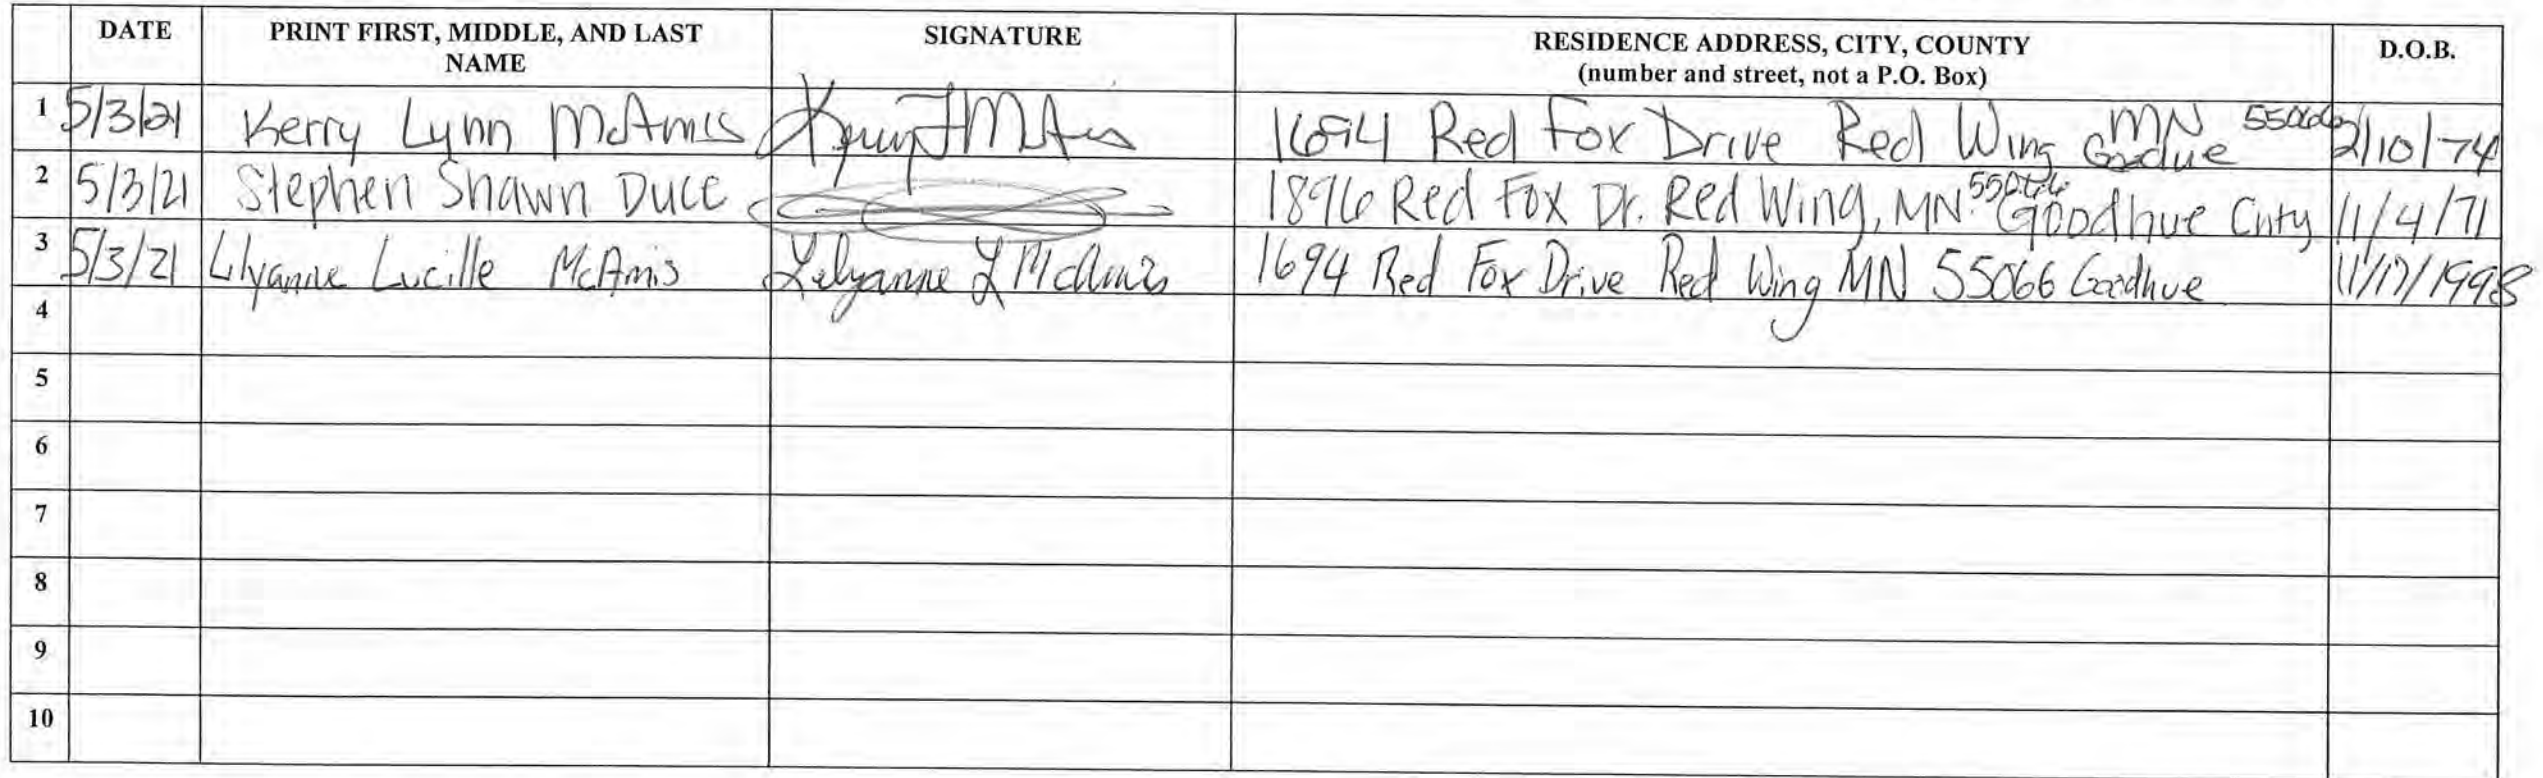 DATE PRINT FIRST, MIDDLE, AND LAST SIGNATURE RESIDENCE ADDRESS, CITY, COUNTY D.O.B.
NAME (number and street, not a P.O. Box)
1 5/3/21 Kerry Lynn McAmis 1694 Red Fox Drive Red Wing MN 55066 2/10/74
Goodue
2 5/3/21 Stephen Shawn Duce 1896 Red Fox Dr. Red Wing, MN. 55066 Goodhue Cnty 11/4/71
3 5/3/21 Lilyanne Lucille McAmis Lilyanne L McAmis 1694 Red Fox Drive Red Wing MN 55066 Goodhue 11/17/1998
4
5
6
7
8
9
10